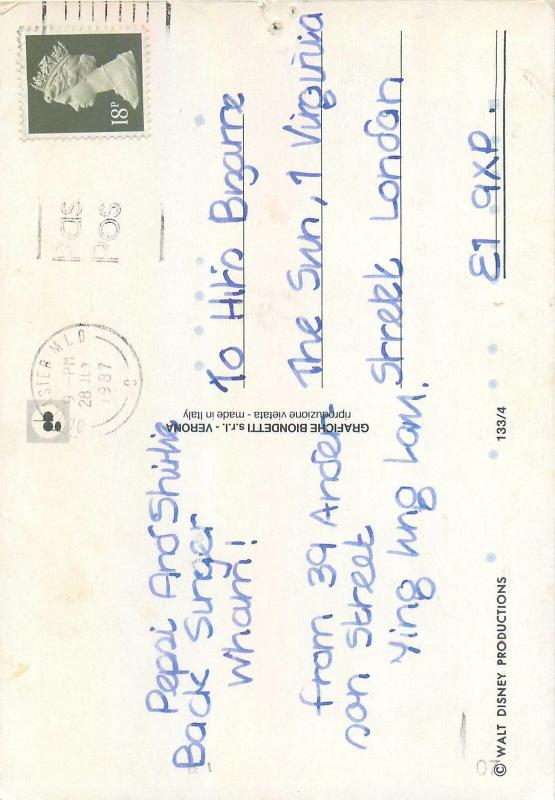 Pepsi And Shirlie
Back Singer
Wham!
from 39 Ander
son Street
Ying Ung Lam.
© WALT DISNEY PRODUCTIONS
133/4
GRAFICHE BIONDETTI s.r.l. - VERONA
riproduzione vietata - made in Italy
STER MLD
9 - PM
28 JLY
1987
Pas
Pos
18P
To Hits Bizarre
The Sun, 1 Virginia
Strekk London
E1 9XP.